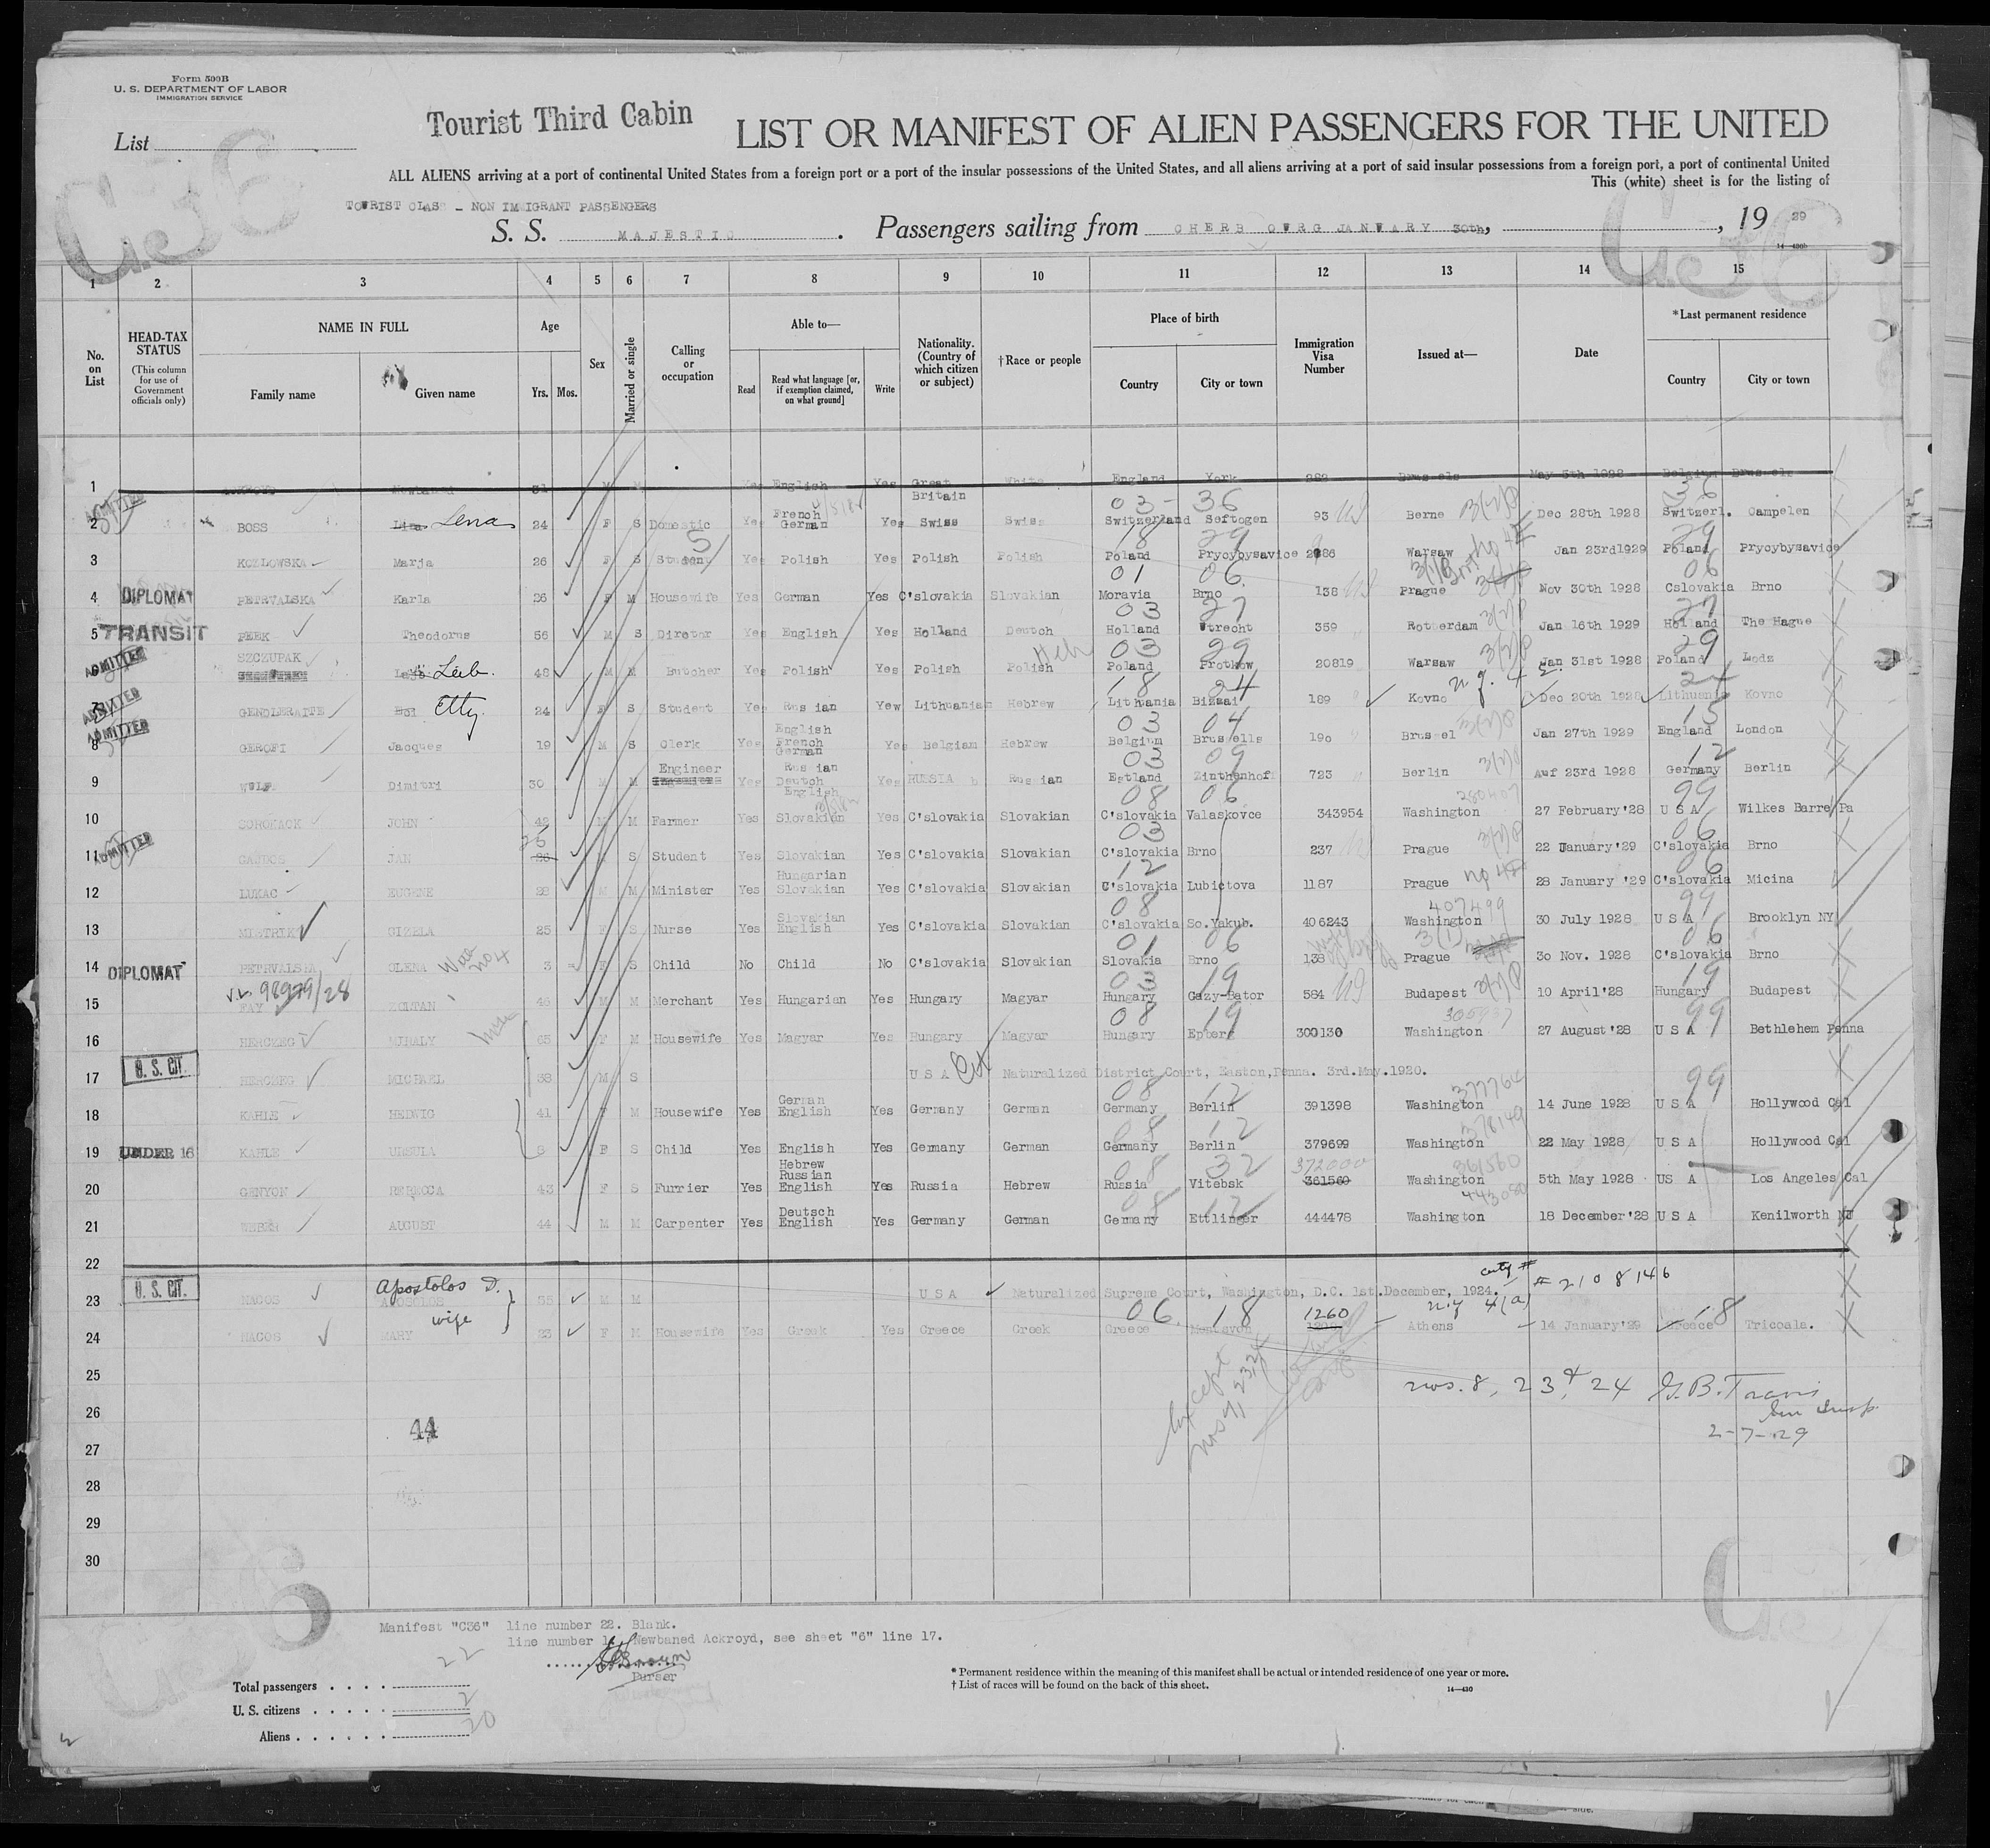 Form 500B
U. S. DEPARTMENT OF LABOR
IMMIGRATION SERVICE
List
Tourist Third Cabin
LIST OR MANIFEST OF ALIEN PASSENGERS FOR THE UNITED
ALL ALIENS arriving at a port of continental United States from a foreign port or a port of the insular possessions of the United States, and all aliens arriving at a port of said insular possessions from a foreign port, a port of continental United
This (white) sheet is for the listing of
TOURIST CLASS - NON IMMIGRANT PASSENGERS
S. S. MAJESTIC . Passengers sailing from CHERBOURG JANUARY 30th, , 19 29
14—430b
1 2 3 4 5 6 7 8 9 10 11 12 13 14 15
No. on List
HEAD-TAX STATUS (This column for use of Government officials only)
NAME IN FULL
Family name Given name
Age Yrs. Mos.
Sex
Married or single
Calling or occupation
Able to— Read Read what language [or, if exemption claimed, on what ground] Write
Nationality. (Country of which citizen or subject)
†Race or people
Place of birth Country City or town
Immigration Visa Number
Issued at—
Date
*Last permanent residence Country City or town
1 31 M M Yes English Yes Great Britain White England York 282 Brussels May 5th 1928 Belgium Brussels
2 ADMITTED BOSS Lina Lena 24 F S Domestic Yes French German Yes Swiss Swiss Switzerland Seftogen 03 - 36 93 Berne 3(2)B Dec 28th 1928 Switzerl. Campelen 36
3 KOZLOWSKA Marja 26 F S Student Yes Polish Yes Polish Polish Poland Prycybysavice 18 29 Warsaw Jan 23rd 1929 Poland Prycybysavice 29
4 DIPLOMAT PETRVALSKA Karla 26 F M Housewife Yes German Yes C'slovakia Slovakian Moravia Brno 01 06 138 Prague Nov 30th 1928 Cslovakia Brno 06
5 TRANSIT PEEK Theodorus 56 M S Diretor Yes English Yes Holland Deutch Holland Utrecht 03 27 359 Rotterdam 3(2)B Jan 16th 1929 Holland The Hague 27
6 ADMITTED SZCZUPAK Leib. 48 M M Butcher Yes Polish Yes Polish Polish Heb Poland Protkow 03 29 20819 Warsaw 3(2)B Jan 31st 1928 Poland Lodz 29
7 ADMITTED GENDLERAITE Etty 24 F S Student Yes Russian Yew Lithuanian Hebrew Lithuania Birzai 18 24 189 Kovno Dec 20th 1928 Lithuania Kovno 24
8 ADMITTED GEROFI Jacques 19 M S Clerk Yes English French German Yes Belgian Hebrew Belgium Brussells 03 04 190 Brussel 3(2)B Jan 27th 1929 England London 15
9 WULF Dimitri 30 M M Engineer Yes Russian Deutch English Yes RUSSIA Russian Estland Zinthenhof 03 09 723 Berlin 3(2)B Auf 23rd 1928 Germany Berlin 12
10 SOROKACK JOHN 48 M M Farmer Yes Slovakian Yes C'slovakia Slovakian C'slovakia Valaskovce 08 06 343954 Washington 280407 27 February'28 U S A Wilkes Barre Pa 99
11 ADMITTED JAN 26 M S Student Yes Slovakian Yes C'slovakia Slovakian C'slovakia Brno 03 237 Prague 3(2)B 22 January'29 C'slovakia Brno 06
12 LUKAC EUGENE 28 M M Minister Yes Hungarian Slovakian Yes C'slovakia Slovakian C'slovakia Lubietova 12 1187 Prague 28 January '29 C'slovakia Micina 06
13 MISTRIK GIZELA 25 F S Nurse Yes Slovakian English Yes C'slovakia Slovakian C'slovakia So.Yakub. 08 406243 Washington 407499 30 July 1928 U S A Brooklyn NY 99
14 DIPLOMAT PETRVALSKA OLENA 3 F S Child No Child No C'slovakia Slovakian Slovakia Brno 01 06 138 Prague 3(1) 30 Nov. 1928 C'slovakia Brno 06
15 FAY ZOLTAN 46 M M Merchant Yes Hungarian Yes Hungary Magyar Hungary Gazy-Bator 03 19 564 Budapest 3(2)B 10 April'28 Hungary Budapest 19
16 HERCZEG MIHALY 65 F M Housewife Yes Magyar Yes Hungary Magyar Hungary 08 19 300130 Washington 27 August'28 U S A Bethlehem Penna 99
17 U. S. CIT. HERCZEG MICHAEL 38 M S U S A Cit Naturalized District Court, Easton, Penna. 3rd.May.1920.
18 KAHLE HEDWIG 41 F M Housewife Yes German English Yes Germany German Germany Berlin 08 12 391398 Washington 377764 14 June 1928 U S A Hollywood Cal 99
19 UNDER 16 KAHLE URSULA 8 F S Child Yes English Yes Germany German Germany Berlin 08 12 379699 Washington 378149 22 May 1928 U S A Hollywood Cal
20 GENYON REBECCA 43 F S Furrier Yes Hebrew Russian English Yes Russia Hebrew Russia Vitebsk 08 32 372000 361560 Washington 361560 5th May 1928 US A Los Angeles Cal
21 WEBER AUGUST 44 M M Carpenter Yes Deutsch English Yes Germany German Germany Ettlinger 08 12 444478 Washington 443080 18 December'28 U S A Kenilworth NJ
22
23 U. S. CIT. NACOS Apostolos D. 35 M M U S A Naturalized Supreme Court, Washington, D.C. 1st.December, 1924. # 2108146
24 NACOS MARY wife 23 F M Housewife Yes Greek Yes Greece Greek Greece 06 18 1260 Athens 14 January'29 Greece Tricoala. 18
25
26
27
28
29
30
44
Except nos 7, 23, 24
nos. 8, 23, & 24 G. B. Travis
Imm Insp.
2-7-29
Manifest "C36" line number 22. Blank.
line number 1. Newbaned Ackroyd, see sheet "6" line 17.
Purser
Total passengers 22
U. S. citizens 2
Aliens 20
* Permanent residence within the meaning of this manifest shall be actual or intended residence of one year or more.
† List of races will be found on the back of this sheet.
14—430